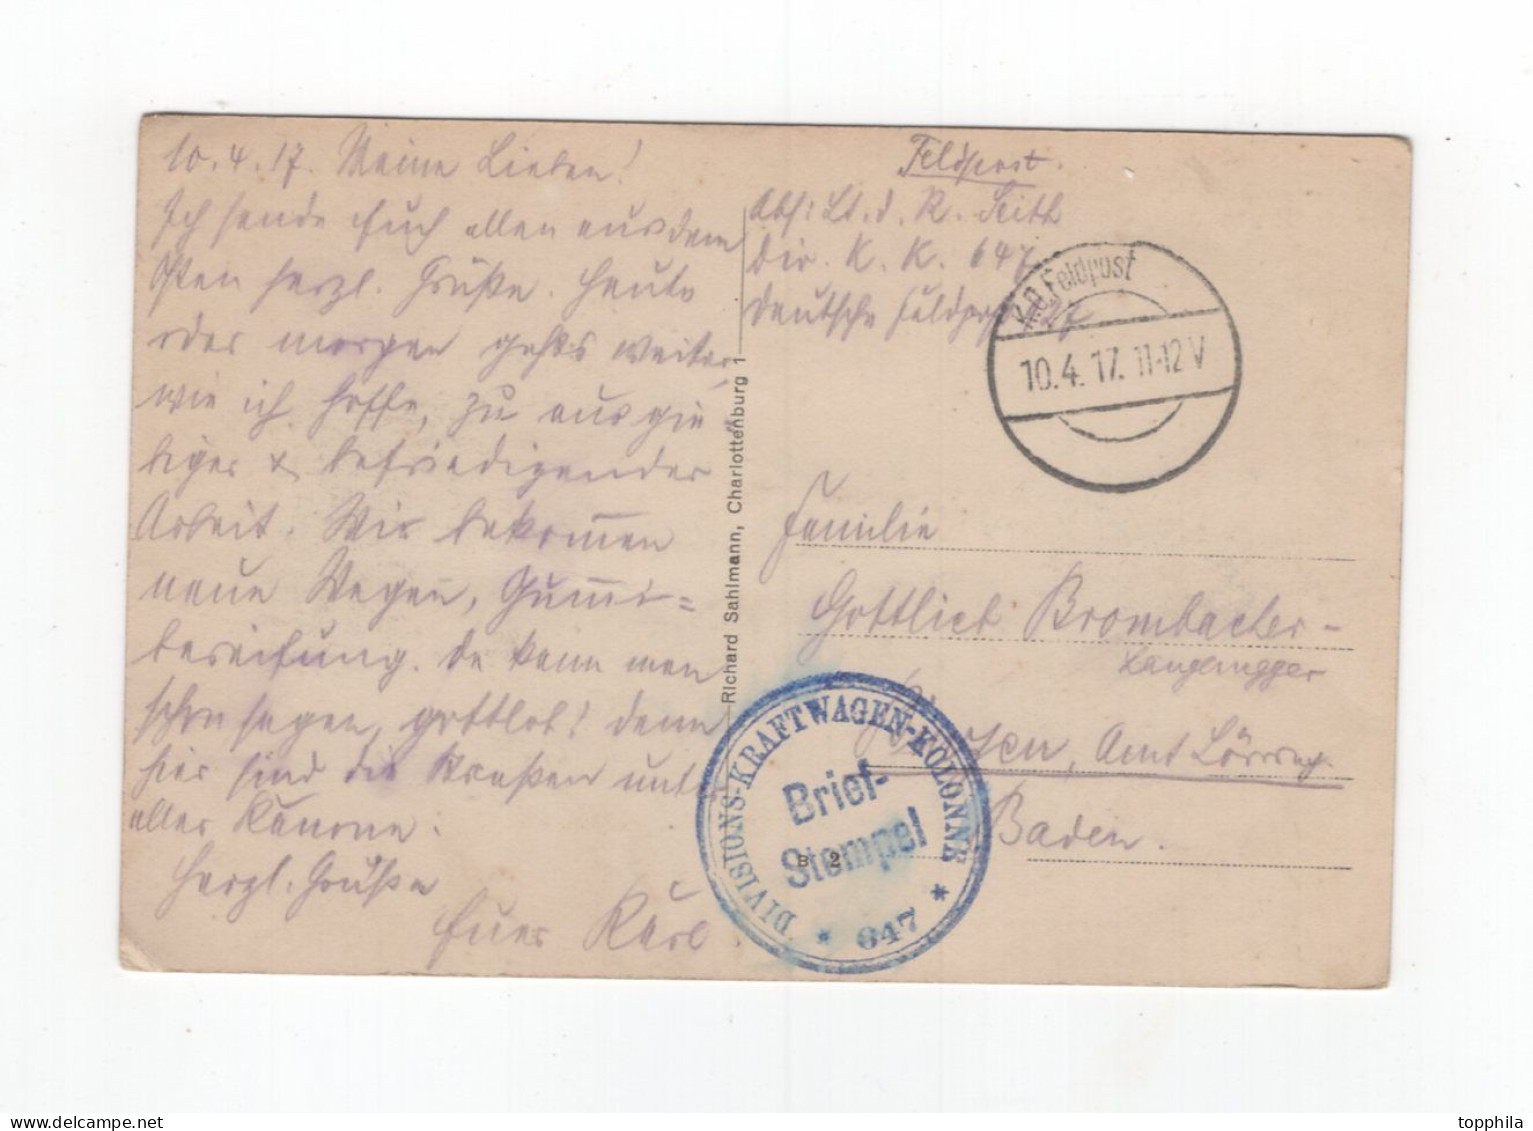 10.4.17. Meine Lieben!
Ich sende Euch allen aus dem
Osten herzl. Grüße. Heute
oder morgen gehts weiter,
wie ich hoffe, zu ausgie
biger & befriedigender
Arbeit. Wir bekom̅en
neue Wagen, Gum̅i-
bereifung. Da kann man
schon sagen, gottlob! denn
hier sind die Straßen unter
aller Kanone.
Herzl. Grüße
Euer Karl.
Feldpost.
Abs: Lt. d. R. Seith
Div. K. K. 647
Deutsche Feldpost 727
K.D. Feldpost
10.4.17. 11-12 V
Familie
Gottlieb Brombacher-
Amt Lörrach
Baden.
Richard Sahlmann, Charlottenburg 1
DIVISIONS-KRAFTWAGEN-KOLONNE
Brief-
Stempel
B 2
* 647 *
topphila